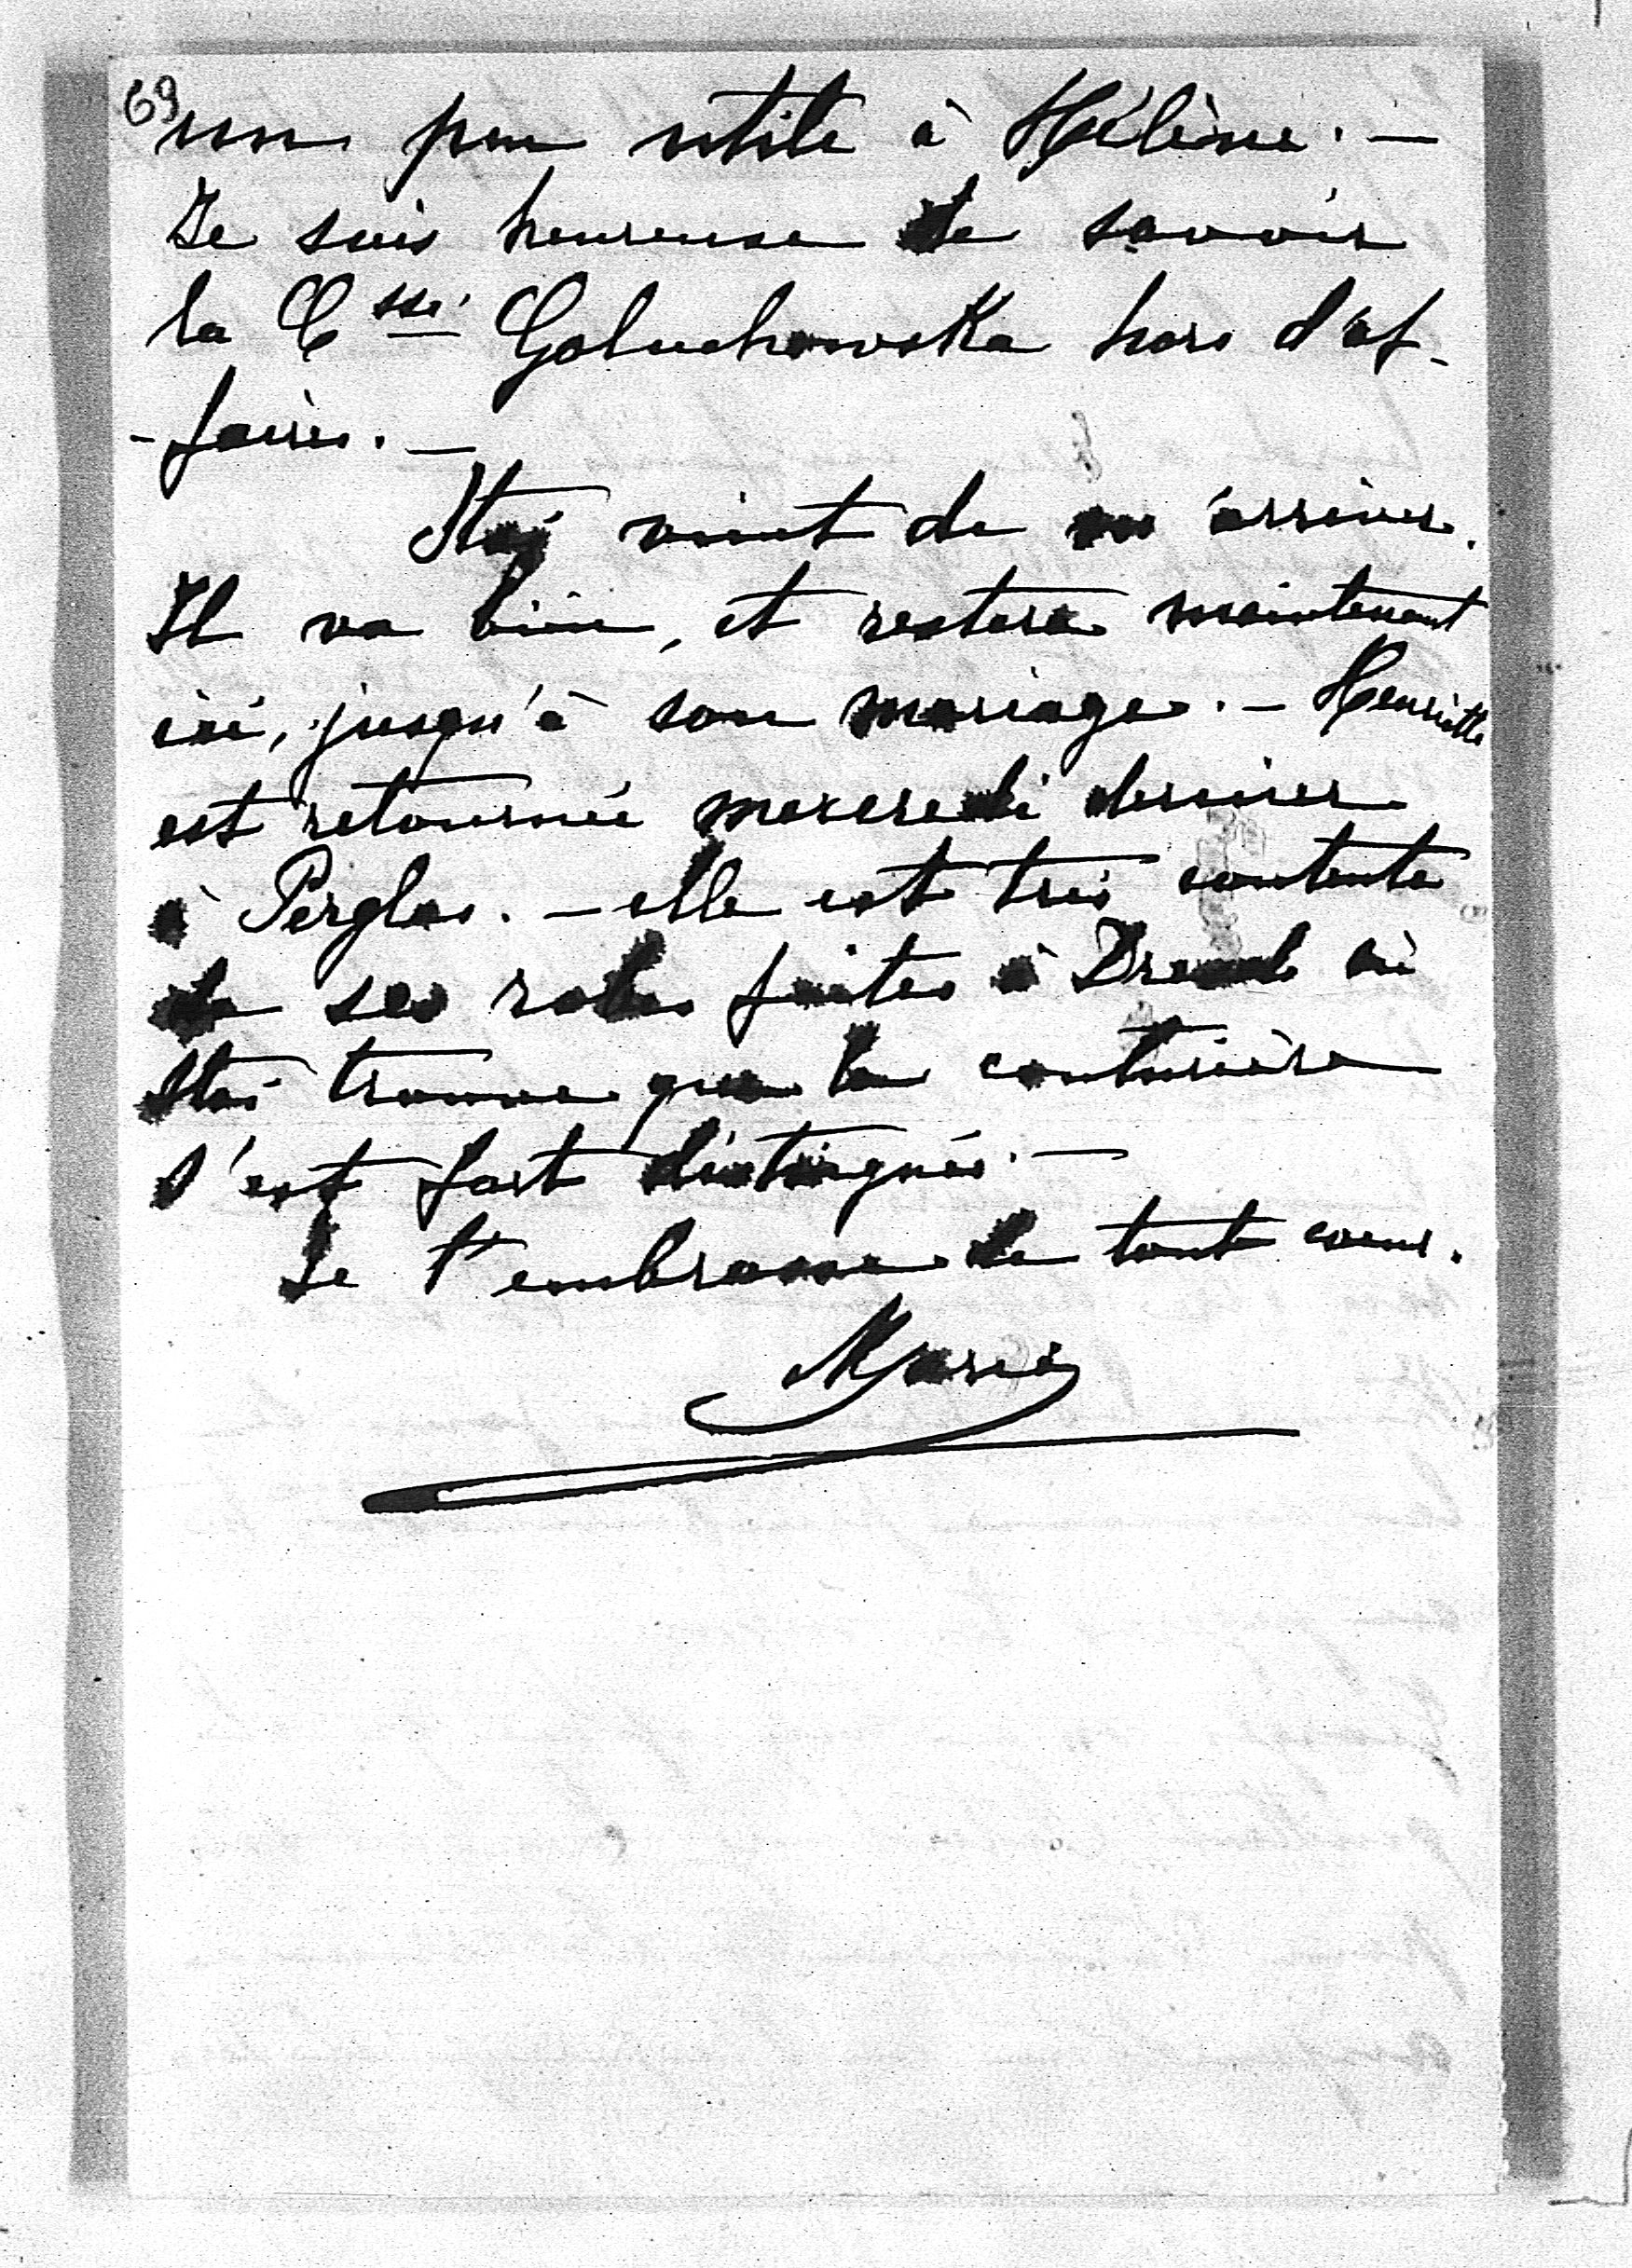 69
un peu utile à Hélène. —
Je suis heureuse de savoir
la Csse Goluchowska hors d'af-
-faires. —
Staś vient de m'arriver.
Il va bien, et restera maintenant
ici, jusqu'à son mariage. — Henriette
est retournée mercredi dernier
à Perglas. — elle est très contente
de ses robes faites à Dresde où
Staś trouve que la couturière
s'est fort distinguée. —
Je t'embrasse de tout coeur.
Marie